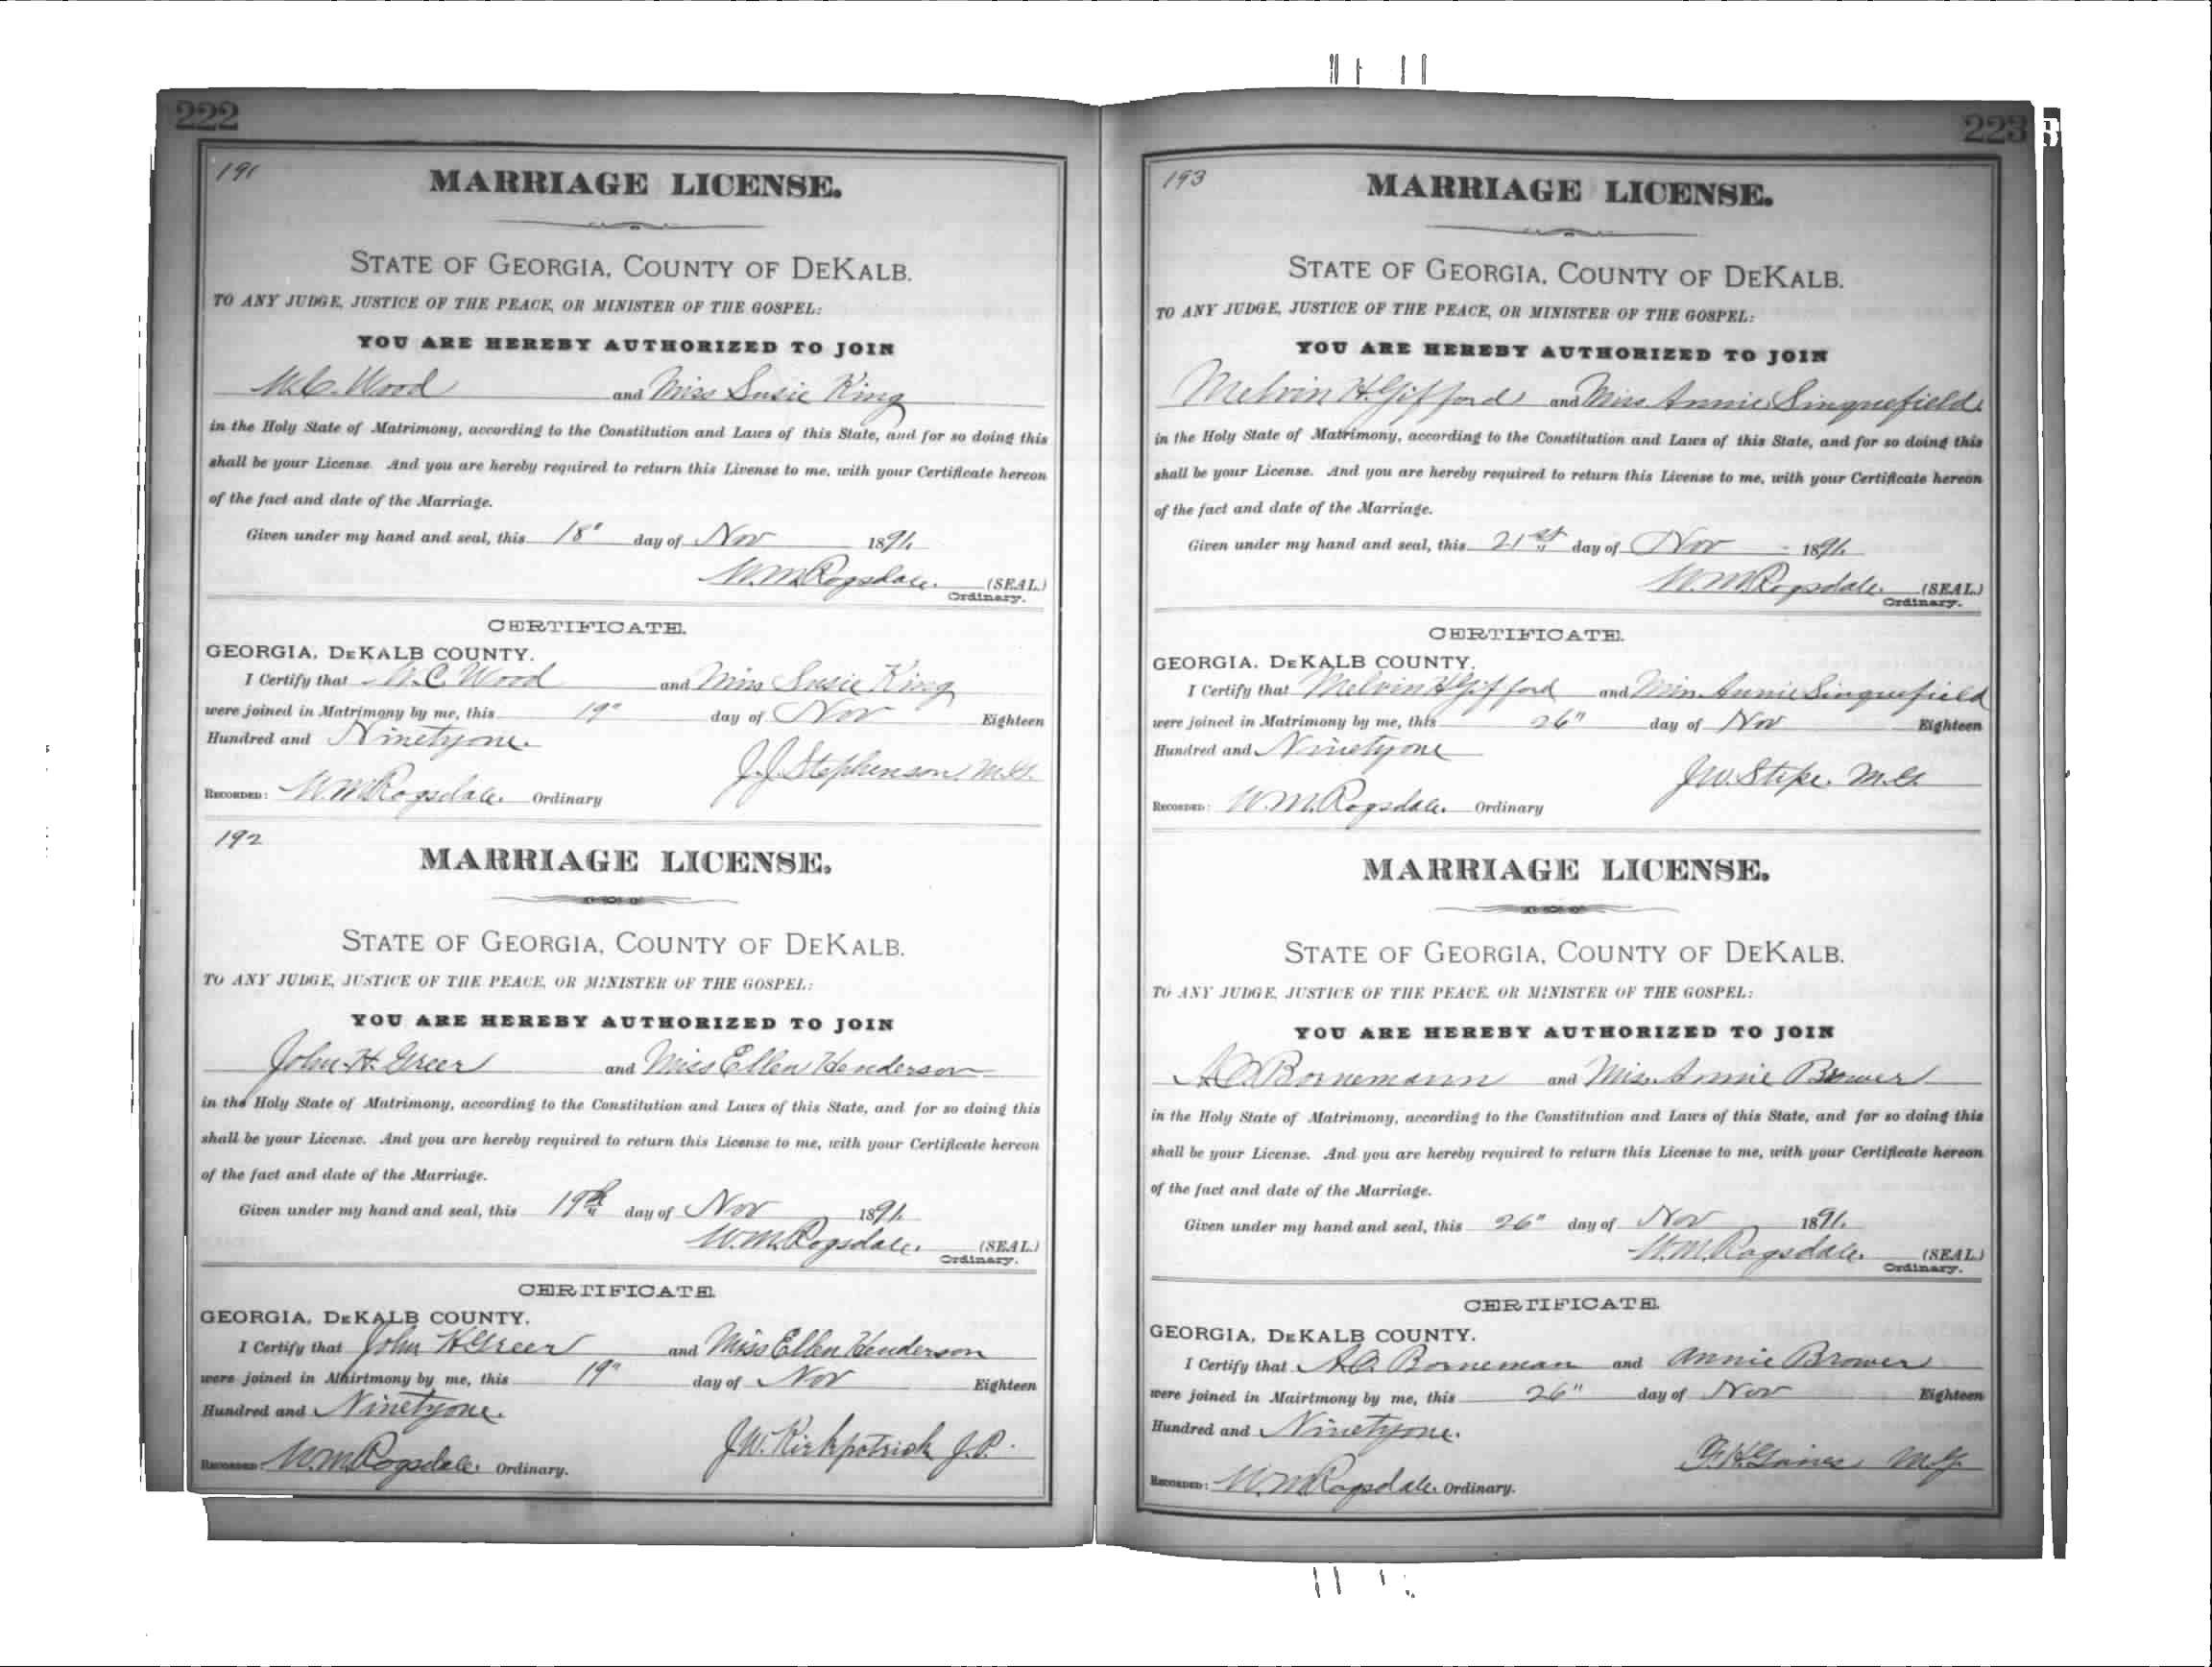 222
191
MARRIAGE LICENSE.
STATE OF GEORGIA, COUNTY OF DEKALB.
TO ANY JUDGE, JUSTICE OF THE PEACE, OR MINISTER OF THE GOSPEL:
YOU ARE HEREBY AUTHORIZED TO JOIN
W.C. Wood and Miss Susie King
in the Holy State of Matrimony, according to the Constitution and Laws of this State, and for so doing this
shall be your License. And you are hereby required to return this License to me, with your Certificate hereon
of the fact and date of the Marriage.
Given under my hand and seal, this 18" day of Nov 1891.
W.M. Ragsdale. (SEAL.)
Ordinary.
CERTIFICATE.
GEORGIA, DEKALB COUNTY.
I Certify that W.C. Wood and Miss Susie King
were joined in Matrimony by me, this 19" day of Nov Eighteen
Hundred and Ninetyone.
J.J. Stephenson, M.G.
RECORDED: W.M. Ragsdale. Ordinary
192
MARRIAGE LICENSE.
STATE OF GEORGIA, COUNTY OF DEKALB.
TO ANY JUDGE, JUSTICE OF THE PEACE, OR MINISTER OF THE GOSPEL:
YOU ARE HEREBY AUTHORIZED TO JOIN
John H. Greer and Miss Ellen Henderson
in the Holy State of Matrimony, according to the Constitution and Laws of this State, and for so doing this
shall be your License. And you are hereby required to return this License to me, with your Certificate hereon
of the fact and date of the Marriage.
Given under my hand and seal, this 19th day of Nov 1891.
W.M. Ragsdale. (SEAL.)
Ordinary.
CERTIFICATE.
GEORGIA, DEKALB COUNTY.
I Certify that John H Greer and Miss Ellen Henderson
were joined in Mairtmony by me, this 19" day of Nov Eighteen
Hundred and Ninetyone.
J.W. Kirkpatrick J.P.
RECORDED: W.M. Ragsdale. Ordinary.
223
193
MARRIAGE LICENSE.
STATE OF GEORGIA, COUNTY OF DEKALB.
TO ANY JUDGE, JUSTICE OF THE PEACE, OR MINISTER OF THE GOSPEL:
YOU ARE HEREBY AUTHORIZED TO JOIN
Melvin H. Gifford and Miss Annie Singuefield
in the Holy State of Matrimony, according to the Constitution and Laws of this State, and for so doing this
shall be your License. And you are hereby required to return this License to me, with your Certificate hereon
of the fact and date of the Marriage.
Given under my hand and seal, this 21st day of Nov 1891.
W.M. Ragsdale. (SEAL.)
Ordinary.
CERTIFICATE.
GEORGIA, DEKALB COUNTY.
I Certify that Melvin H Gifford and Miss Annie Singuefield
were joined in Matrimony by me, this 26" day of Nov Eighteen
Hundred and Ninetyone
J.W. Stipe. M.G.
RECORDED: W.M. Ragsdale. Ordinary
MARRIAGE LICENSE.
STATE OF GEORGIA, COUNTY OF DEKALB.
TO ANY JUDGE, JUSTICE OF THE PEACE, OR MINISTER OF THE GOSPEL:
YOU ARE HEREBY AUTHORIZED TO JOIN
Bornemann and Miss Annie Brower
in the Holy State of Matrimony, according to the Constitution and Laws of this State, and for so doing this
shall be your License. And you are hereby required to return this License to me, with your Certificate hereon
of the fact and date of the Marriage.
Given under my hand and seal, this 26" day of Nov 1891.
W.M. Ragsdale. (SEAL.)
Ordinary.
CERTIFICATE.
GEORGIA, DEKALB COUNTY.
I Certify that Borneman and Annie Brower
were joined in Mairtmony by me, this 26" day of Nov Eighteen
Hundred and Ninetyone.
F.H. Gaines M.G.
RECORDED: W.M. Ragsdale. Ordinary.